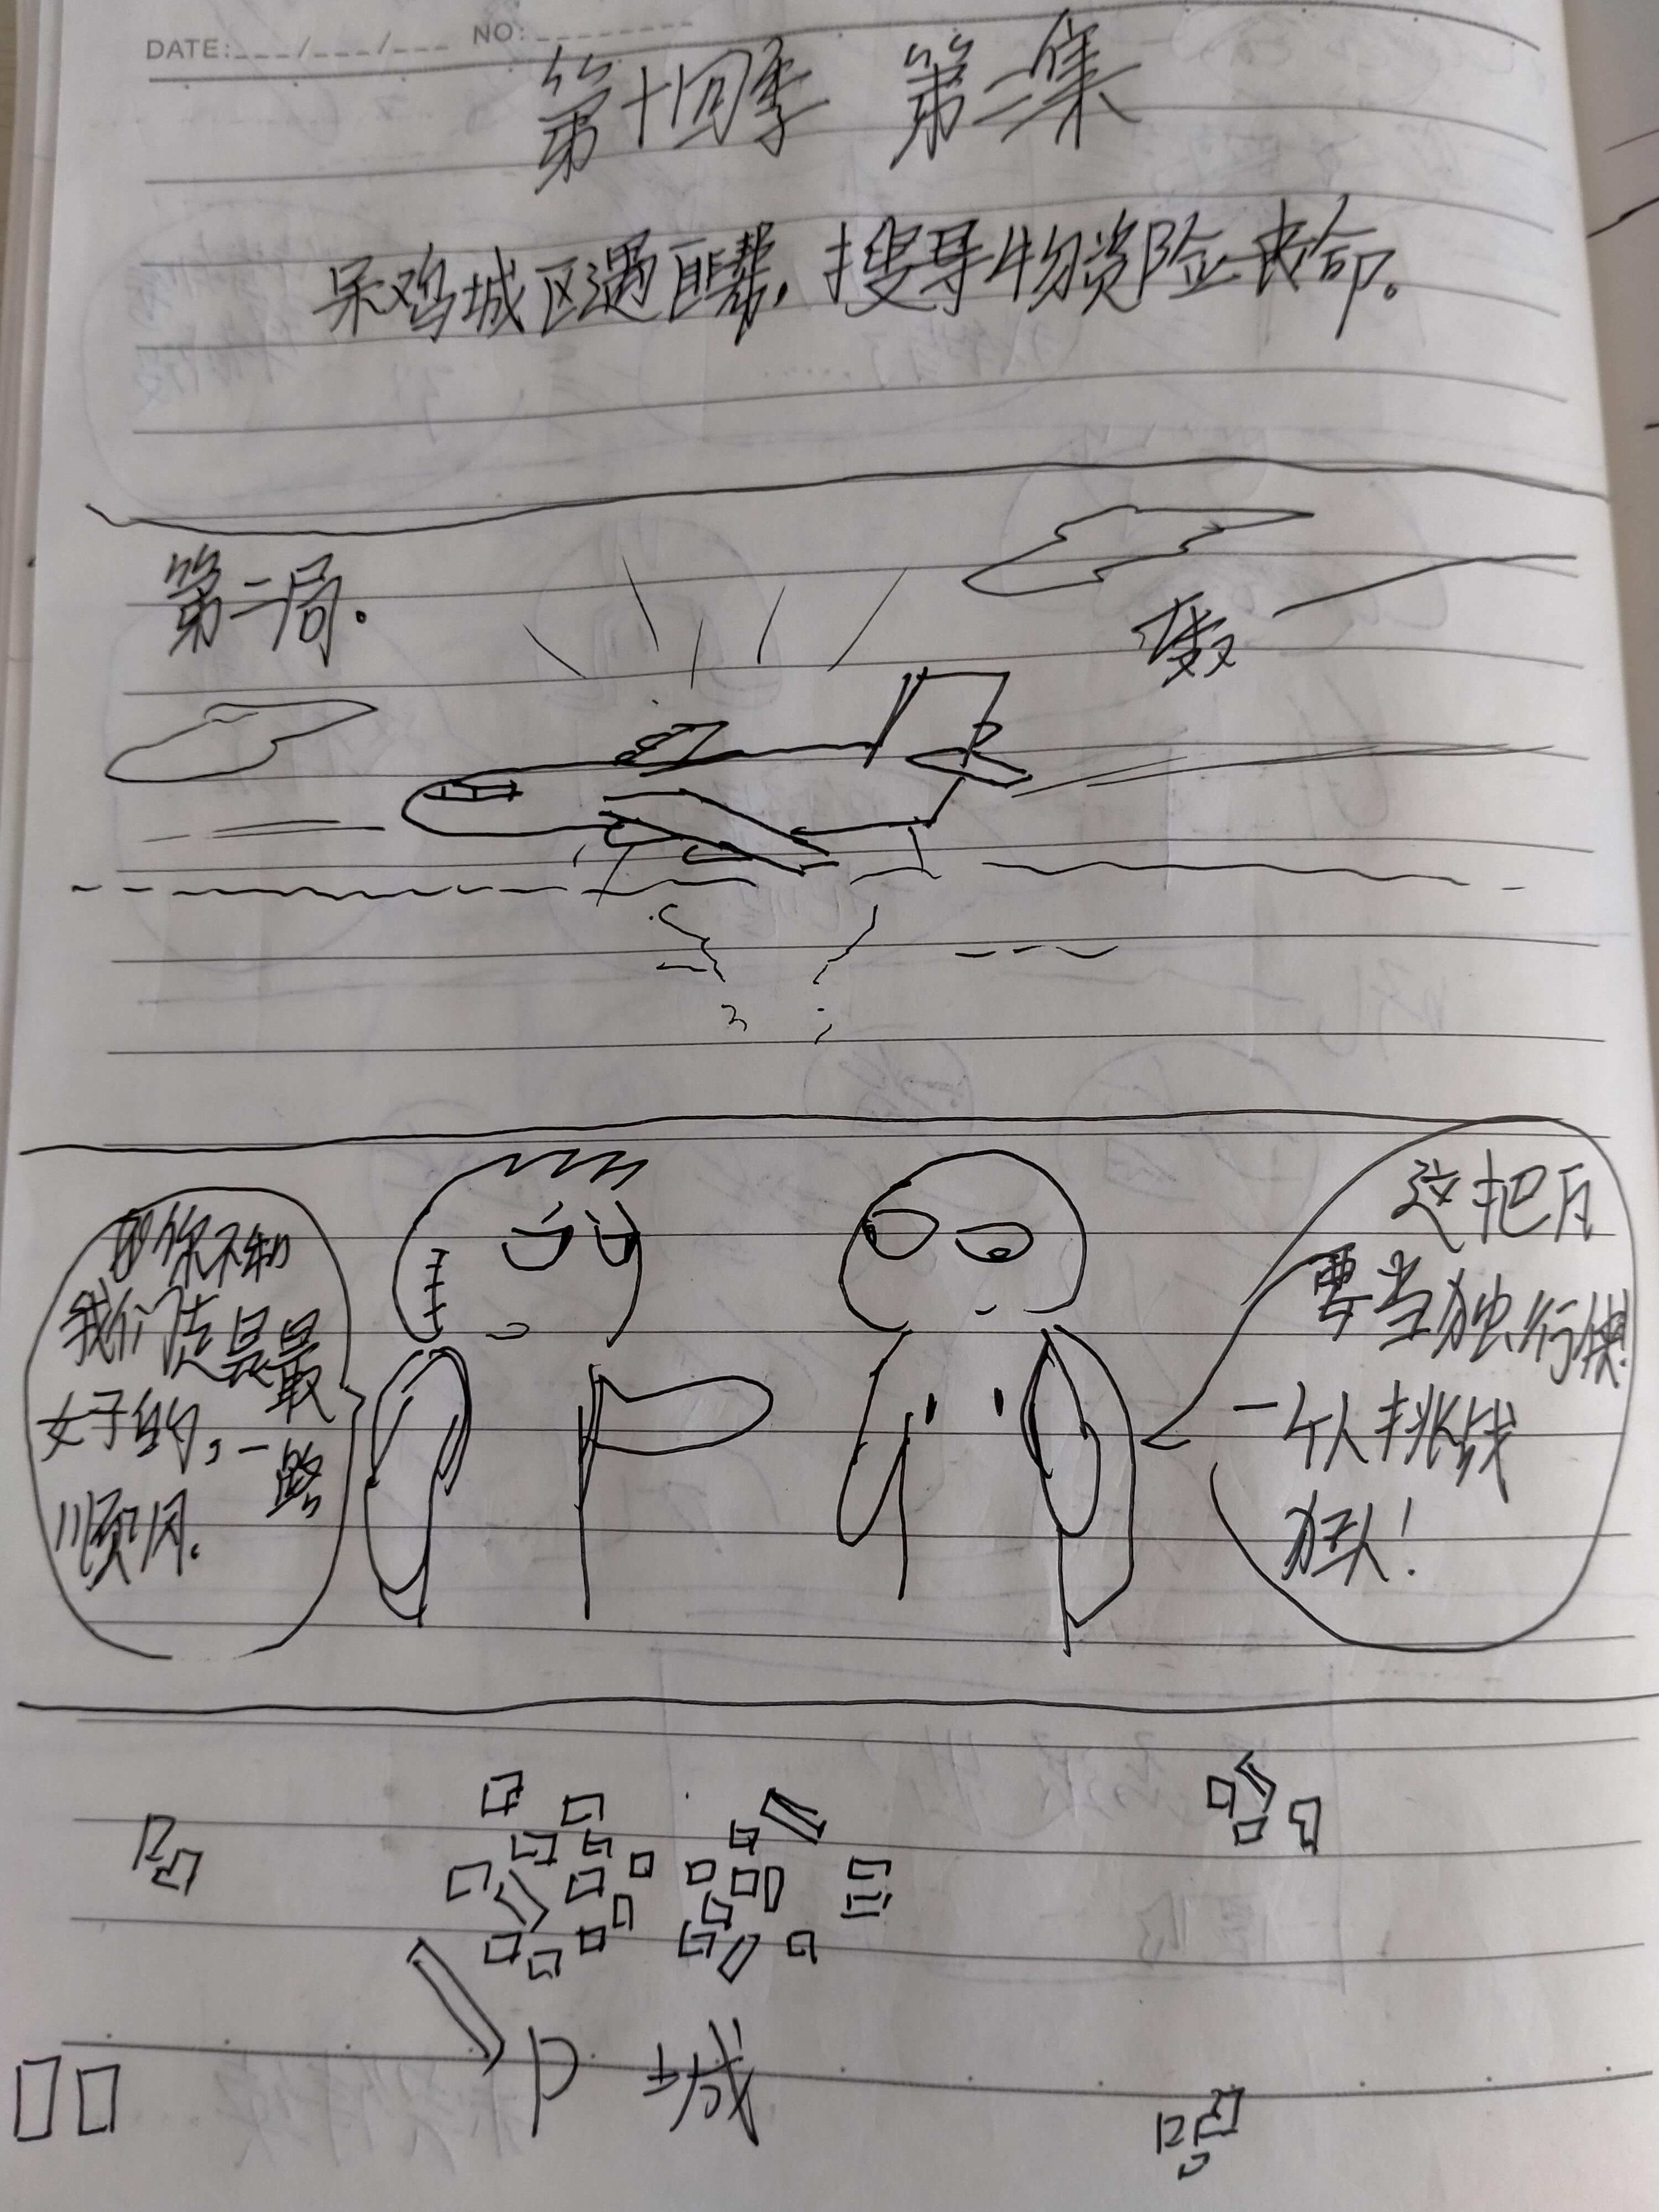 DATE:___/___/___ NO:_______
第十四季 第二集
呆鸡城区遇匪帮，搜寻物资险丧命。
第二局.
这把我
要当独行侠!
一个人挑战
狂人!
你不和
我们走是最
好的，一路
顺风.
P 城